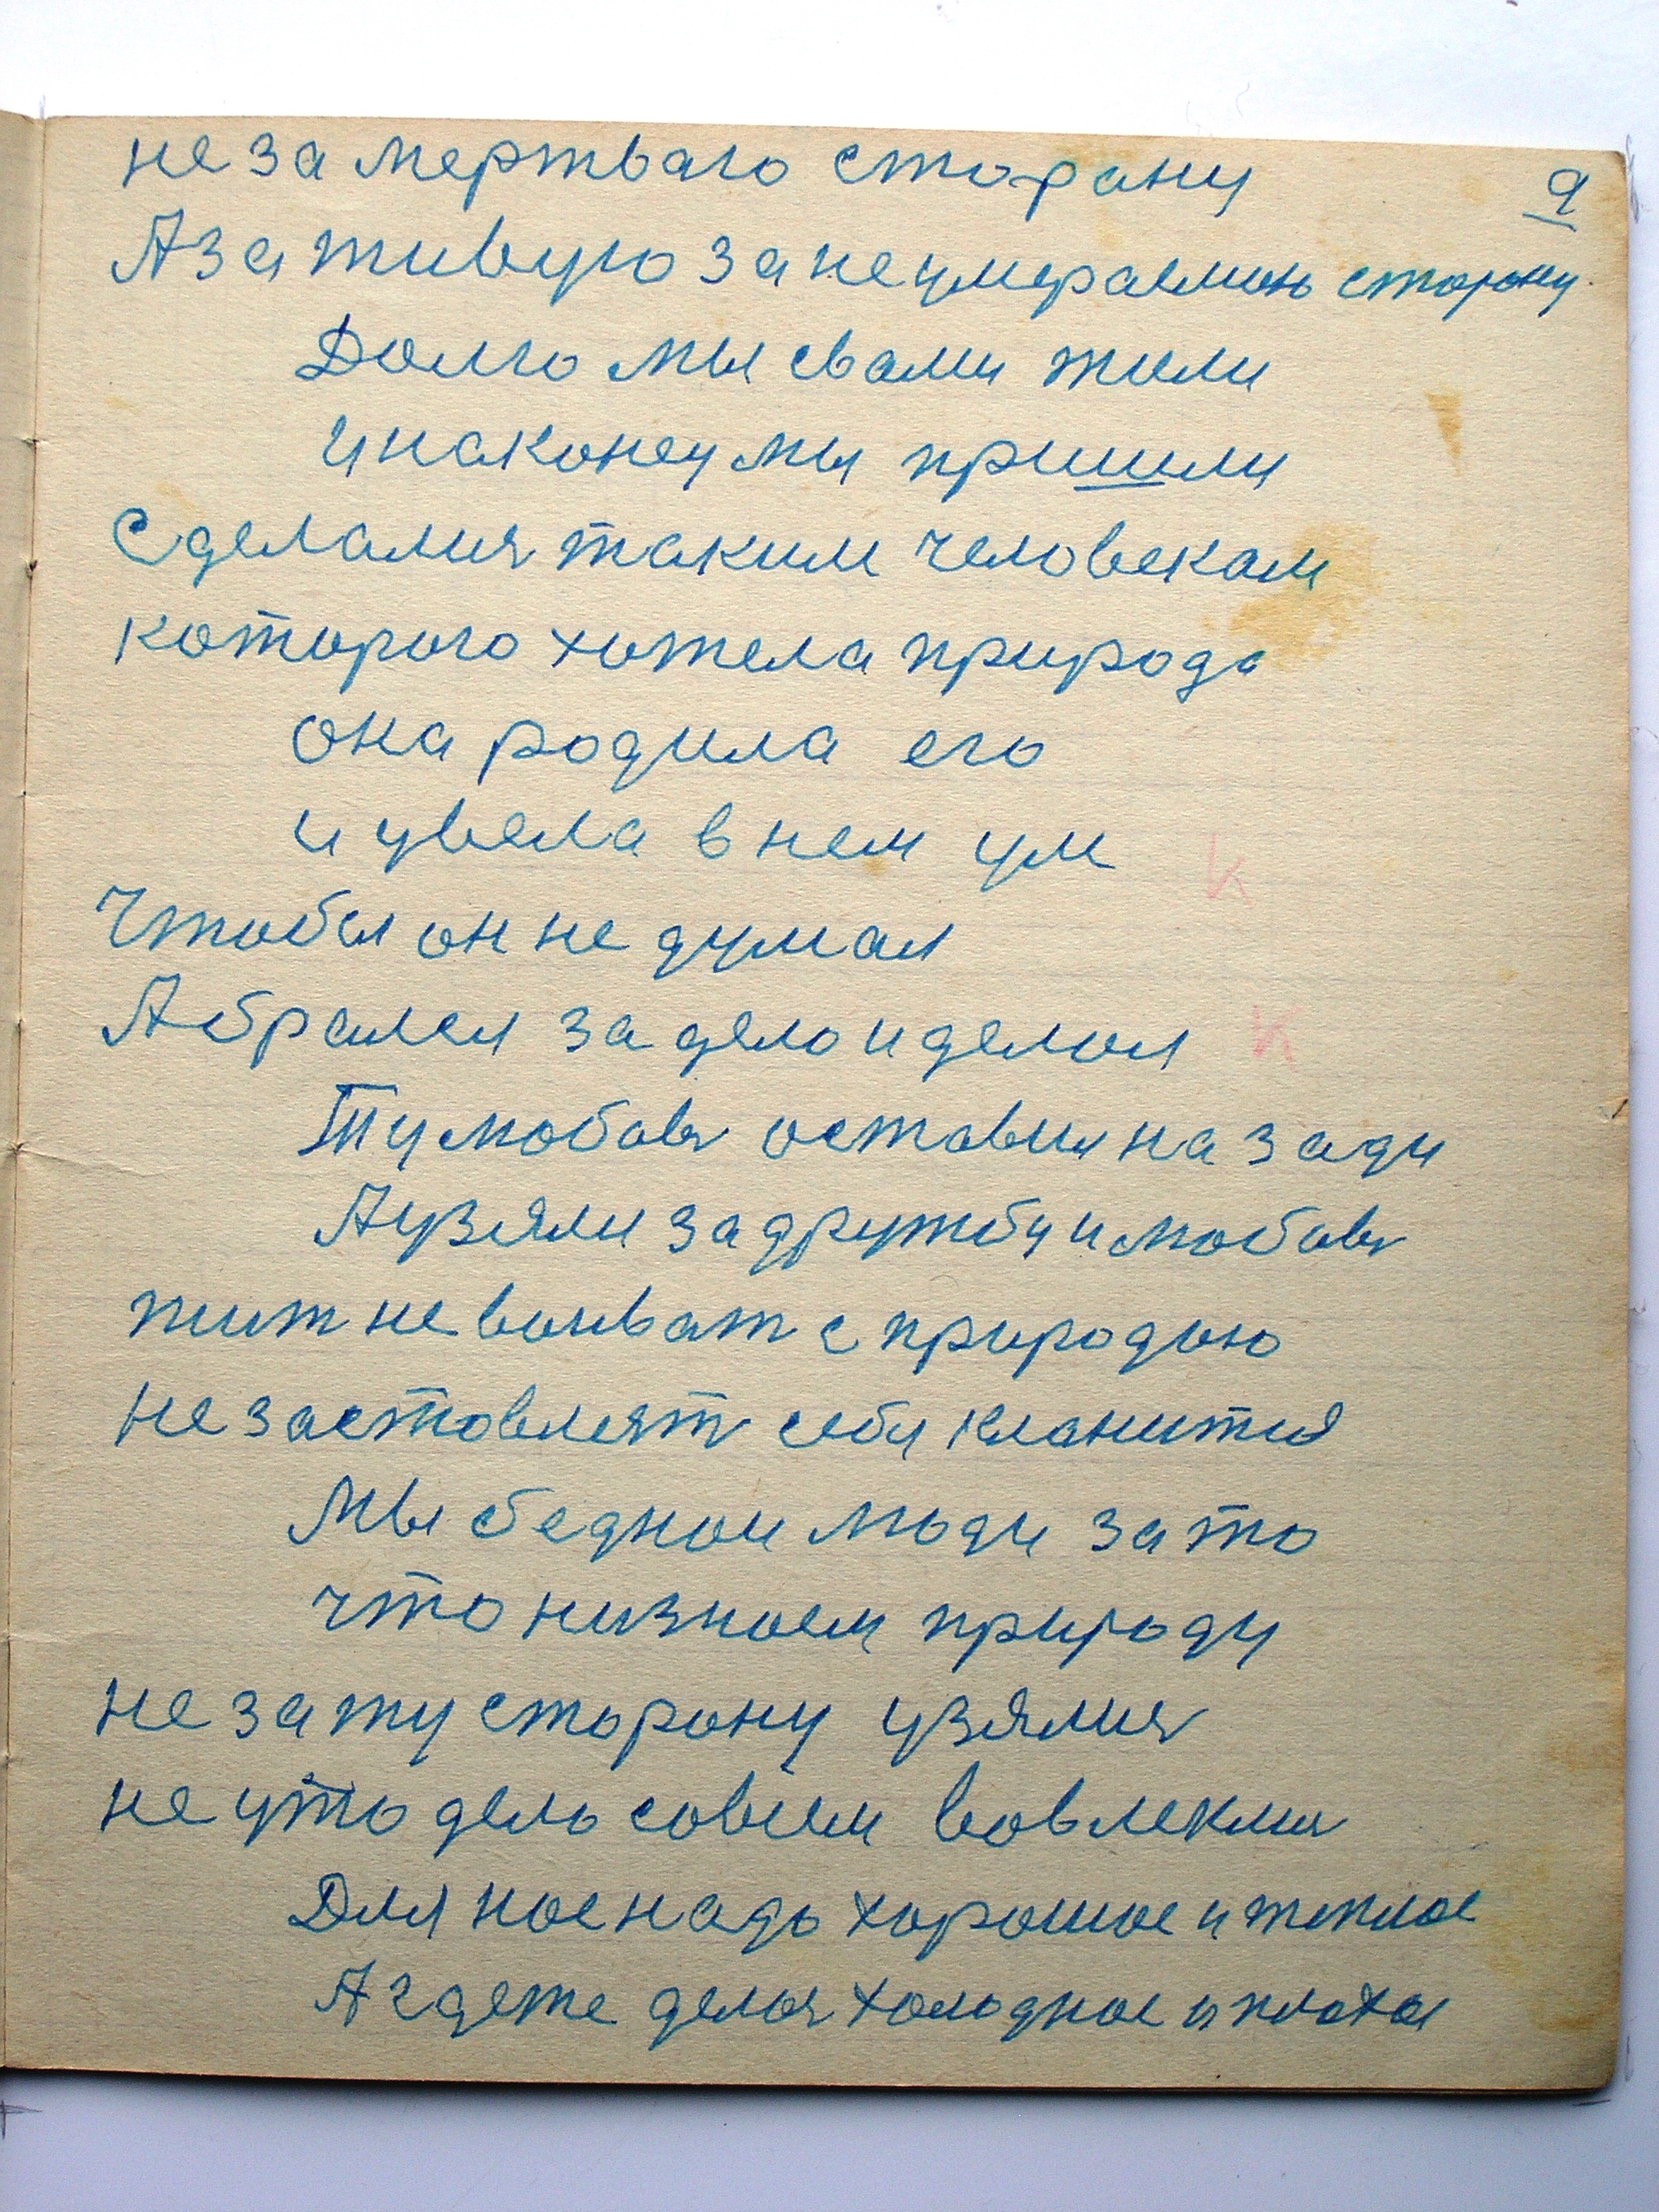 9
не за мертваго сторану
А за живую за неумераемою сторону.
Долго мы свами жили
и наконец мы пришли
Сделался таким человекам
которого хотела природа
она родила его
и увела в нем ум
Чтобы он не думал
А брался за дело и делал
Ту любовь оставил на зади
А узяли за дружбу и любовь
жит не воиват с природою
не заставлят себя кланится
Мы беднои люди за то
что низнаем природу
не за ту сторону узялися
не у то дело совсем вовлеклися
Для нас надо хорошое и теплое
А где же делся холодное и плохое